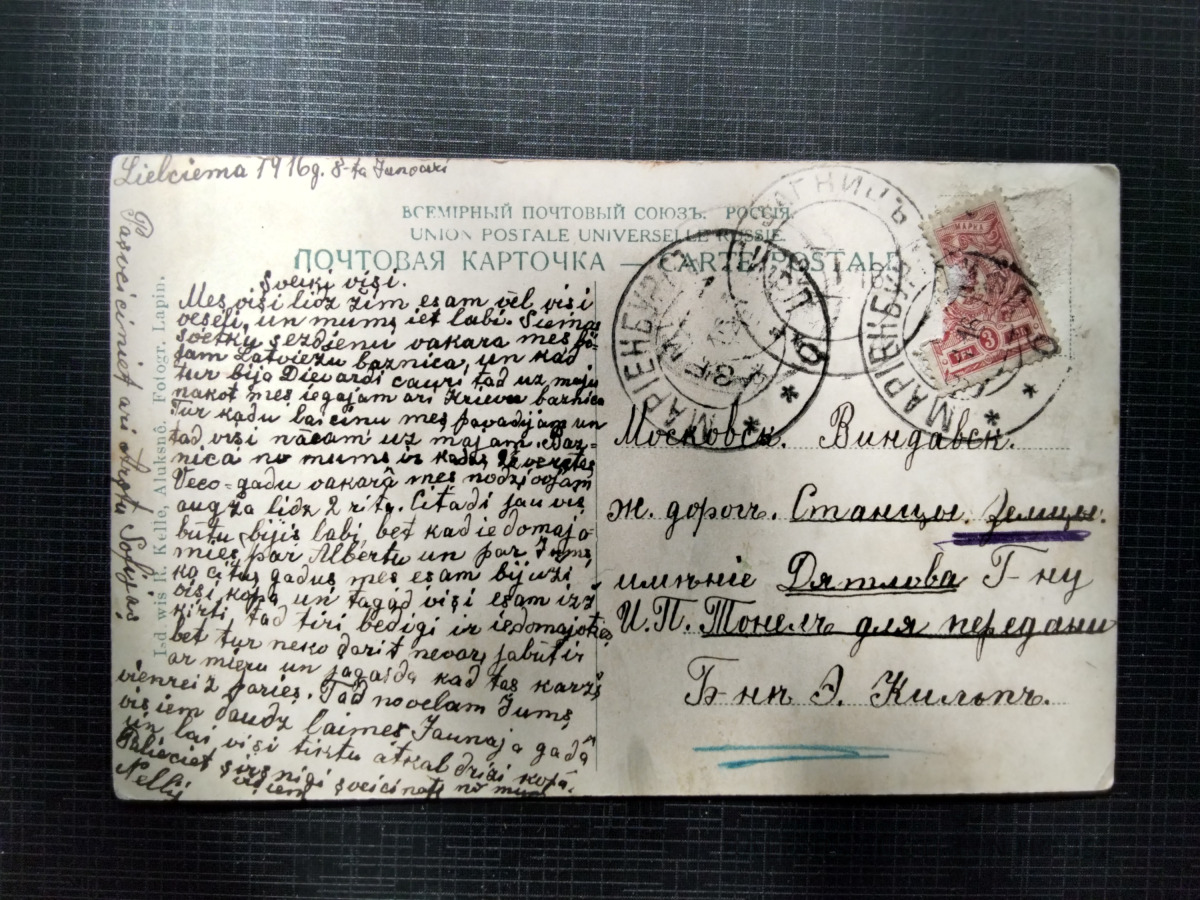 Lielciema 1916g. 8-ta Janvari
ВСЕМІРНЫЙ ПОЧТОВЫЙ СОЮЗЪ. РОССІЯ.
UNION POSTALE UNIVERSELLE RUSSIE
ПОЧТОВАЯ КАРТОЧКА — CARTE POSTALE
Sveiki visi.
Mes visi lidz zim esam vēl visi
veseli, un mums iet labi. Siemas
svētku sezdienu vakara mes bō-
jam Latviešu baznica, un kad
tur bija Dievārdi cauri tad uz maju
nakot mes iegajam ari Krievu baznica
Tur kadu laicinu mes pavadijam un
tad visi nācam uz majam. Baz-
nica no mums ir kadas verstes
Veco-gadu vakarā mes nodzivojam
augža lidz 2 rita. Citadi jau vis
būtu bijis labi, bet kad iedomaja
mies par Albertu un par Jums,
ka citus gadus mes esam bijuzi
visi kopā un tagad visi esam izz
kirti, tad tiri bedigi ir iedomajotes,
bet tur neko darit nevar, jabūt ir
ar mieru un jagaida kad tas karzs
vienreiz paries. Tad novelam Jums
visiem daudz laimes Jaunaja gadā
un lai visi tiktu atkal drizi kopā.
Palieciet sirsnigi sveicinati no mums
visiem
Nellij
Pasveiciniet ari Sofijas
Isd wis R. Kelle, Aluksnô. Fotogr. Lapin.
МАРІЕНБУРГЪ
МАРІЕНБУРГЪ
МАРКА
3
Московск. Виндавск.
ж. дорог. Станцы. Земцы.
имѣніе Дятлова Г-ну
И.П. Тонелъ для передачи
Б-нѣ Э. Кильпъ.